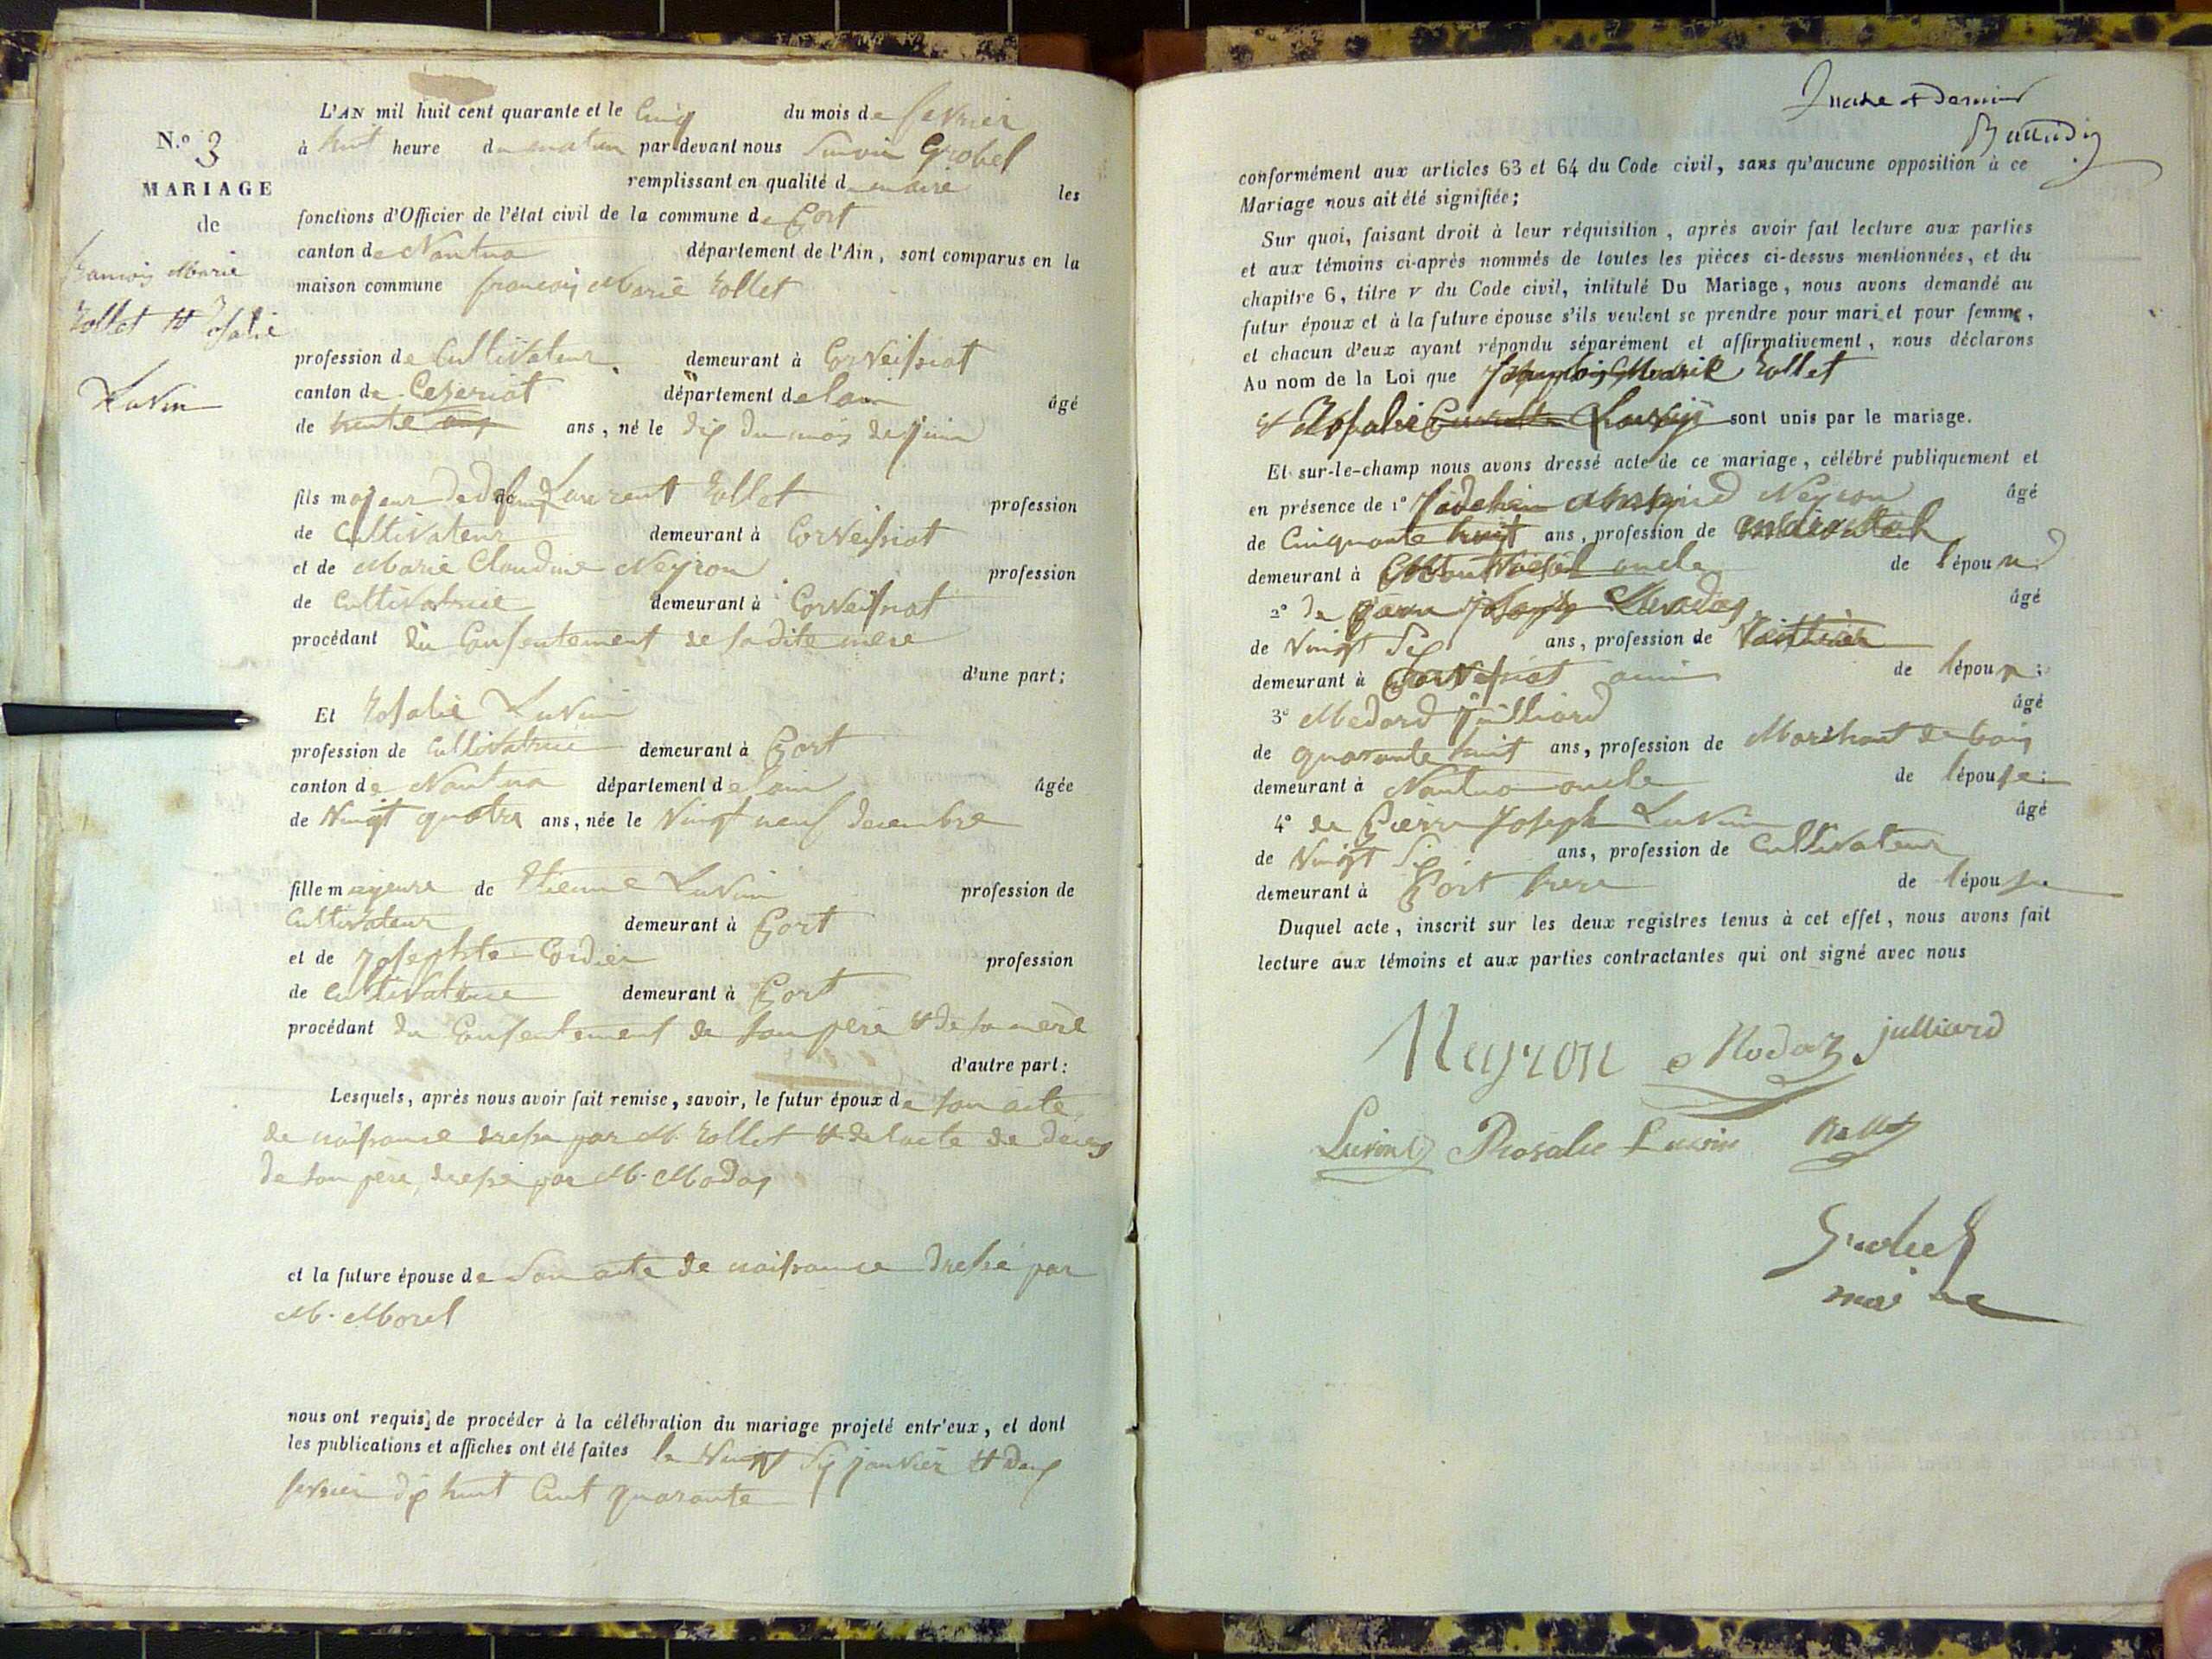 N.º 3
MARIAGE
de
francois Marie
Rollet et Rosalie
Luvin
L'AN mil huit cent quarante et le Cinq du mois de fevrier
à huit heure du matin par devant nous Grobel
remplissant en qualité de maire les
fonctions d'Officier de l'état civil de la commune de Port
canton de Nantua département de l'Ain, sont comparus en la
maison commune francois Marie Rollet
profession de Cultivateur demeurant à Corveissiat
canton de Ceseriat département de lain âgé
de trente ans, né le dix du mois de juin
fils majeur de defunt Laurent Rollet profession
de Cultivateur demeurant à Corveissiat
et de Marie Claudine Neyron profession
de Cultivatrice demeurant à Corveissiat
procédant du Consentement de sadite mere
d'une part;
Et Rosalie Luvin
profession de Cultivatrice demeurant à Port
canton de Nantua département de lain âgée
de Vingt quatre ans, née le Vingt neuf decembre
fille majeure de Etienne Luvin profession de
Cultivateur demeurant à Port
et de Josephte Cordier profession
de Cultivatrice demeurant à Port
procédant du Consentement de son père et de sa mere
d'autre part:
Lesquels, après nous avoir fait remise, savoir, le futur époux de son acte
de naissance dressé par M. Rollet et de lacte de deces
de son père, dressé par M. Modas
et la future épouse de Son acte de naissance dressé par
M. Morel
nous ont requis de procéder à la célébration du mariage projeté entr'eux, et dont
les publications et affiches ont été faites le Vingt Six janvier et deux
fevrier dix huit Cent quarante
conformément aux articles 63 et 64 du Code civil, sans qu'aucune opposition à ce
Mariage nous ait été signifiée;
Sur quoi, faisant droit à leur réquisition, après avoir fait lecture aux parties
et aux témoins ci-après nommés de toutes les pièces ci-dessus mentionnées, et du
chapitre 6, titre V du Code civil, intitulé Du Mariage, nous avons demandé au
futur époux et à la future épouse s'ils veulent se prendre pour mari et pour femme,
et chacun d'eux ayant répondu séparément et affirmativement, nous déclarons
Au nom de la Loi que Marie Rollet
et Rosalie sont unis par le mariage.
Et sur-le-champ nous avons dressé acte de ce mariage, célébré publiquement et
en présence de 1º Neyron âgé
de Cinquante huit ans, profession de
demeurant à oncle de l'époux
2º de âgé
de Vingt Six ans, profession de
demeurant à Corveissiat ami de l'époux;
3º Medard Julliard âgé
de quarante huit ans, profession de Marchant de bois
demeurant à Nantua oncle de l'épouse;
4º de Pierre Joseph Luvin âgé
de Vingt Six ans, profession de Cultivateur
demeurant à Port frere de l'épouse
Duquel acte, inscrit sur les deux registres tenus à cet effet, nous avons fait
lecture aux témoins et aux parties contractantes qui ont signé avec nous
Neyron Modas julliard
Luvin Rosalie Luvin Rollet
Grobel
maire